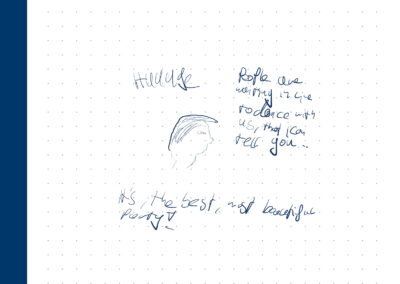 Huuuge
People are
waiting in line
to dance with
us, that I can
tell you...
It's, the best, most beautiful
Party!